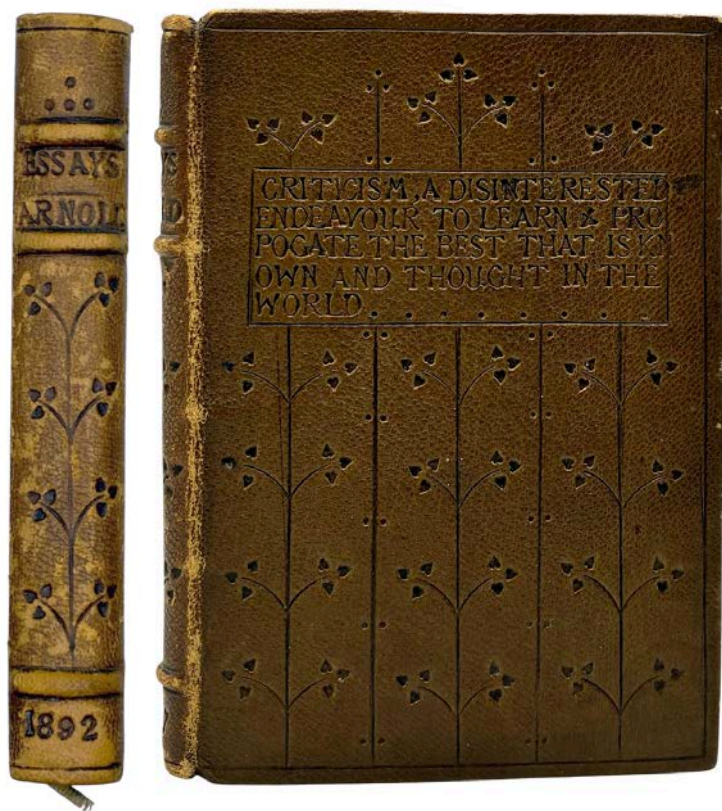 ESSAYS
ARNOLD
1892
CRITICISM, A DISINTERESTED
ENDEAVOUR TO LEARN & PRO
POGATE THE BEST THAT IS KN
OWN AND THOUGHT IN THE
WORLD.